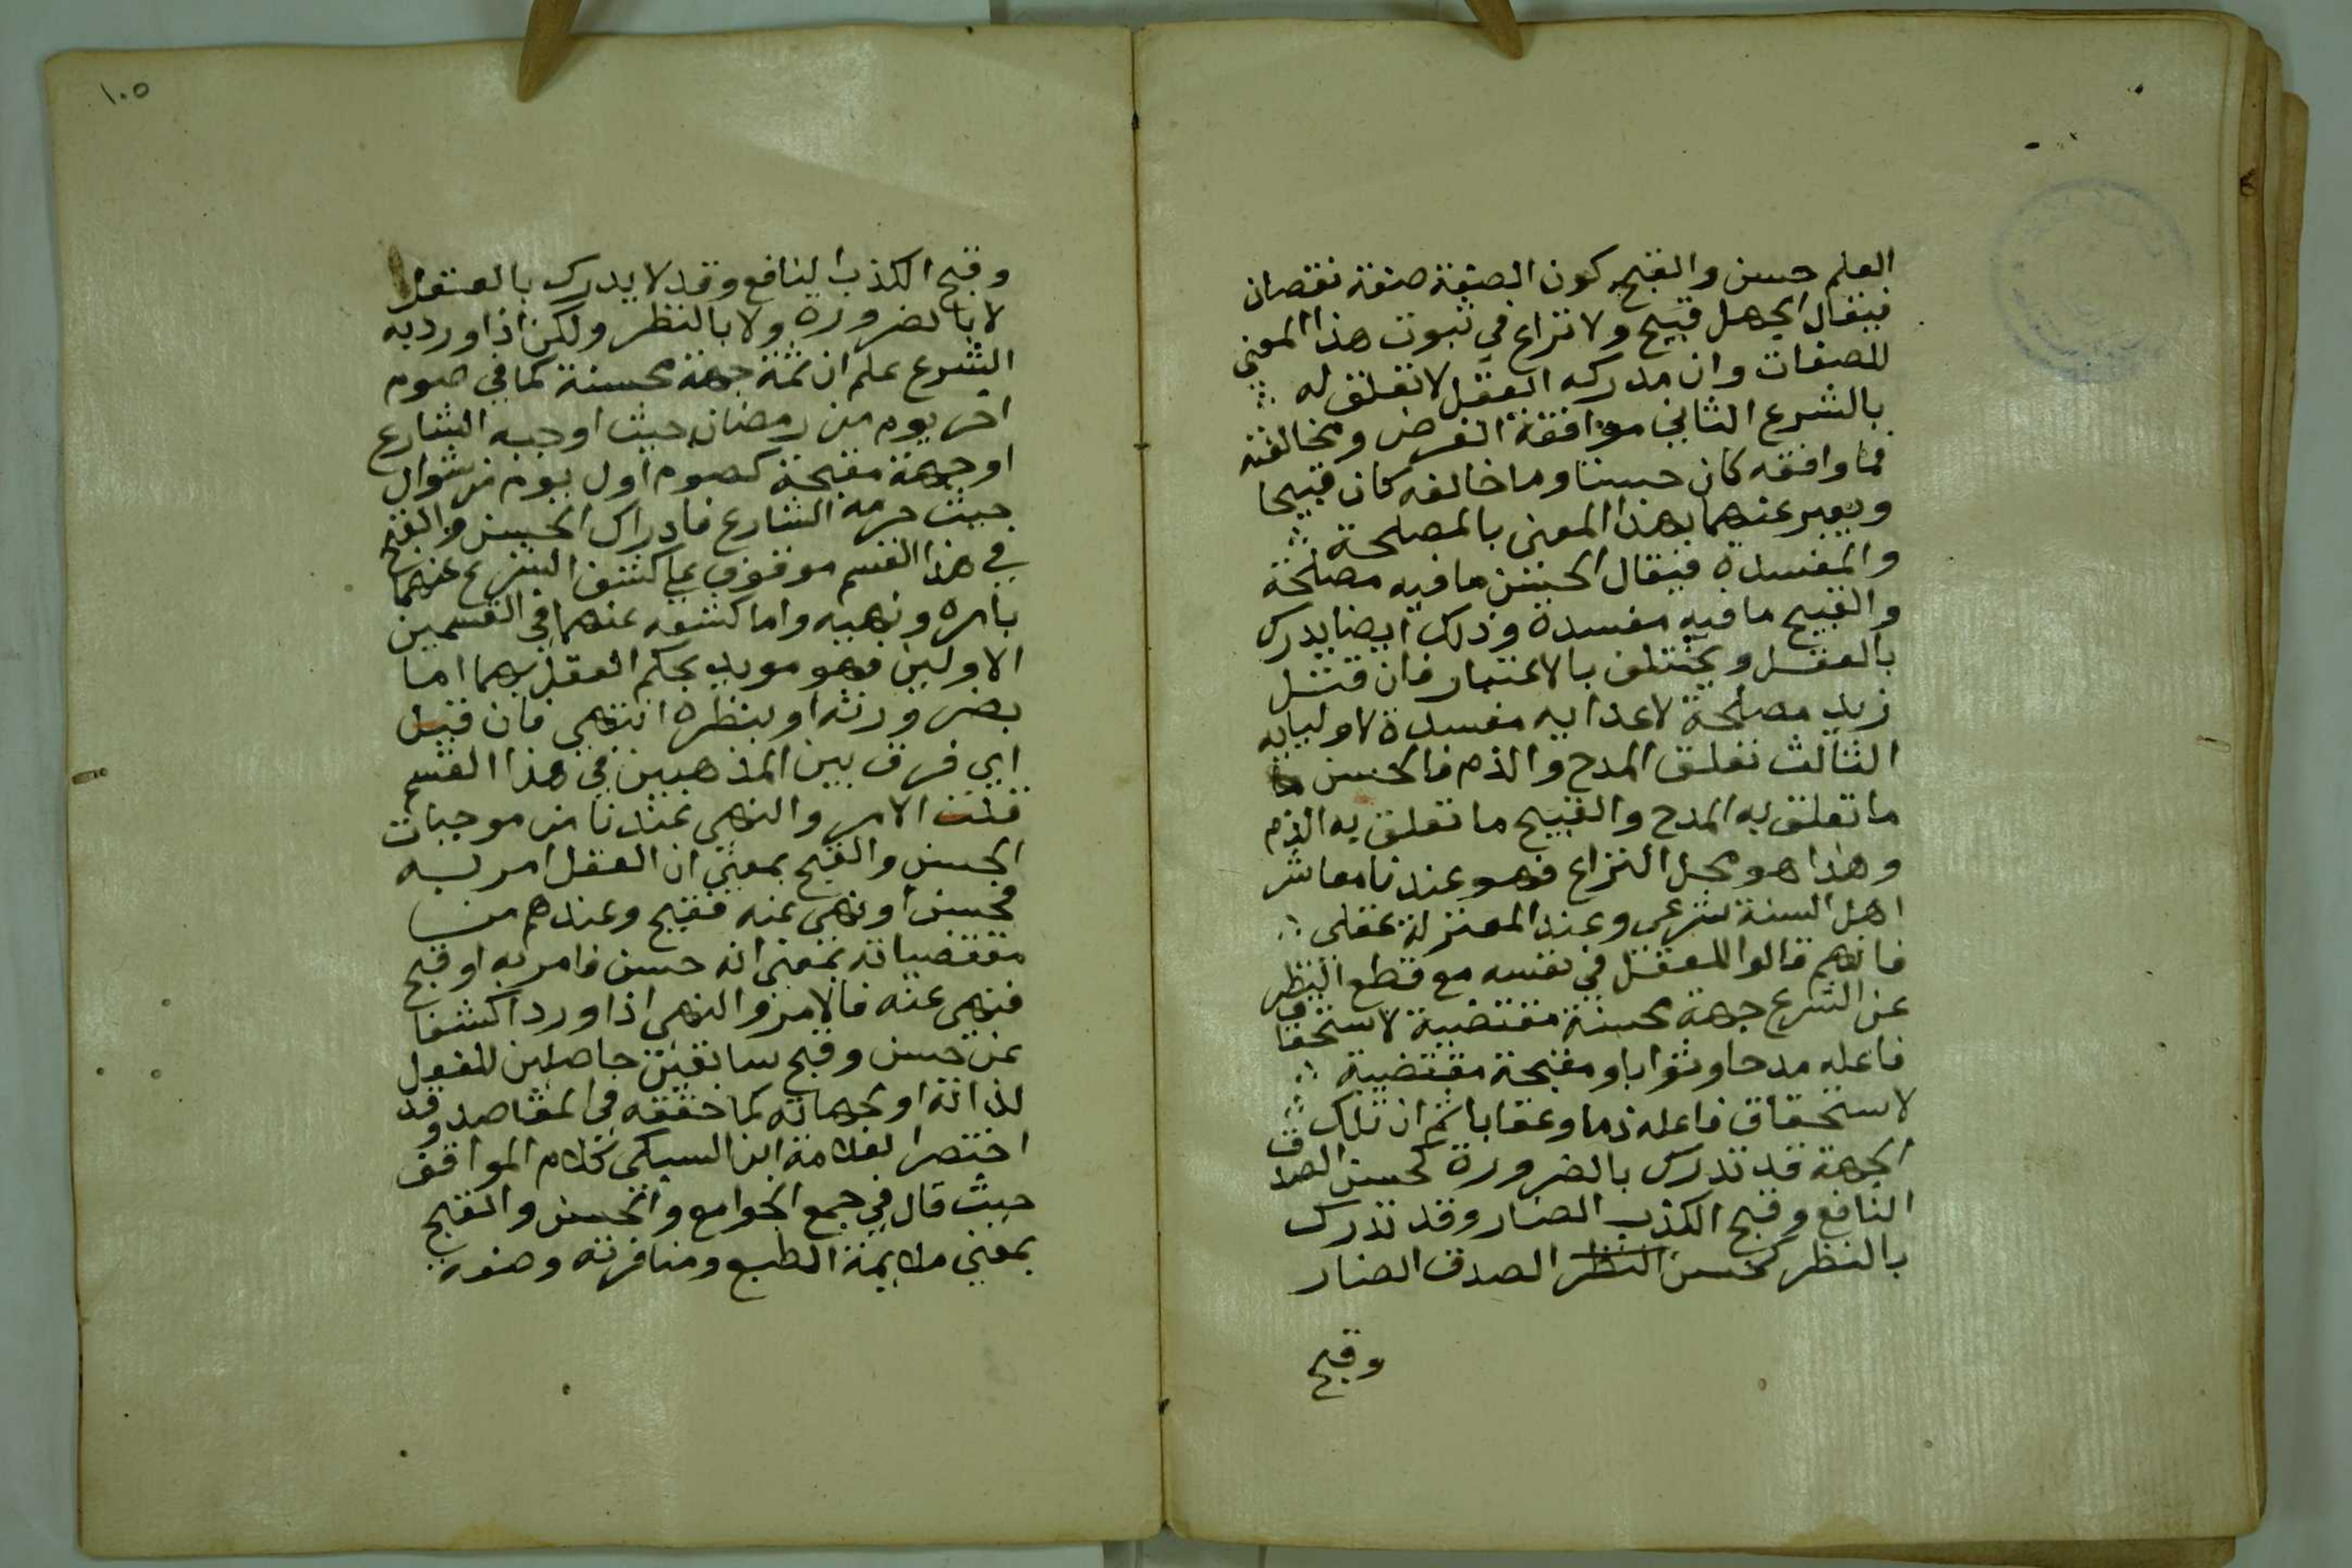 العلم حسن والقبح كون الصفة صفة نقصان
فيقال الجهل قبيح ولا نزاع في ثبوت هذا المعني
للصفات وان مدركه العقل لا تعلق له
بالشرع الثاني موافقة الغرض ومخالفته
فما وافقه كان حسنا وما خالفه كان قبيحا
ويعبر عنهما بهذا المعني بالمصلحة
والمفسدة فيقال الحسن ما فيه مصلحة
والقبيح ما فيه مفسدة وذلك ايضا يدرك
بالعقل ويختلف بالاعتبار فان قتل
زيد مصلحة لاعدايه مفسدة لاوليايه
الثالث تعلق المدح والذم فالحسن
ما تعلق به المدح والقبيح ما تعلق به الذم
وهذا هو محل النزاع فهو عندنا معاشر
اهل السنة شرعي وعند المعتزلة عقلي
فانهم قالوا للعقل في نفسه مع قطع النظر
عن الشرع جهة محسنة مقتضية لاستحقاق
فاعله مدحا وثوابا ومقبحة مقتضية
لاستحقاق فاعله ذما وعقابا ثم ان تلك
الجهة قد تدرك بالضرورة كحسن الصدق
النافع وقبح الكذب الضار وقد تدرك
بالنظر كحسن النظر الصدق الضار
وقبح
١٠٥
وقبح الكذب النافع وقد لا يدرك بالعقل
لا بالضرورة ولا بالنظر ولكن اذا ورد به
الشرع علم ان ثمة جهة محسنة كما في صوم
اخر يوم من رمضان حيث اوجبه الشارع
او جهة مقبحة كصوم اول يوم من شوال
حيث حرمه الشارع فادراك الحسن والقبح
في هذا القسم موقوف علي كشف الشرع عنهما
بامره ونهيه واما كشفه عنهما في القسمين
الاولين فهو مويد بحكم العقل بهما اما
بضرورته او بنظره انتهي فان قيل
اي فرق بين المذهبين في هذا القسم
قلت الامر والنهي عندنا من موجبات
الحسن والقبح بمعني ان العقل امر به
فحسن او نهي عنه فقبح وعندهم من
مقتضياته بمعني انه حسن فامر به او قبح
فنهي عنه فالامر والنهي اذا وردا كشفا
عن حسن وقبح سابقين حاصلين للفعل
لذاته او لجهاته كما حققه في المقاصد وقد
اختصر العلامة ابن السبكي كلام المواقف
حيث قال في جمع الجوامع والحسن والقبح
بمعني ملايمة الطبع ومنافرته وصفة